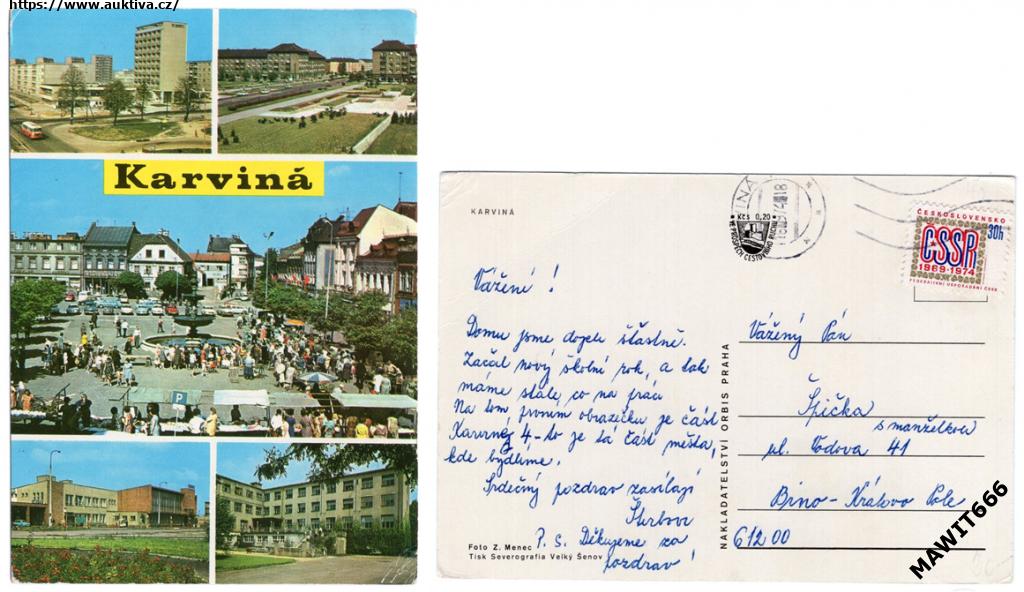 https://www.auktiva.cz/
Karviná
P
KARVINÁ
VINÁ
Kčs 0,20
VE PROSPĚCH CESTOVNÍHO RUCHU
ČESKOSLOVENSKO
30h
ČSSR
1969-1974
FEDERATIVNÍ USPOŘÁDÁNÍ ČSSR
Vážení!
Domů jsme dojeli šťastně.
Začal nový školní rok, a tak
máme stále co na práci
Na tom prvním obrázečku je část
Karviné 4 - to je ta část města,
kde bydlíme.
Srdečný pozdrav zasílají
P. S. Děkujeme za
pozdrav!
Foto Z. Menec
Tisk Severografia Velký Šenov
NAKLADATELSTVÍ ORBIS PRAHA
Vážený Pán
Špička
s manželkou
ul. Vodova 41
Brno - Královo Pole
612 00
MAWIT666